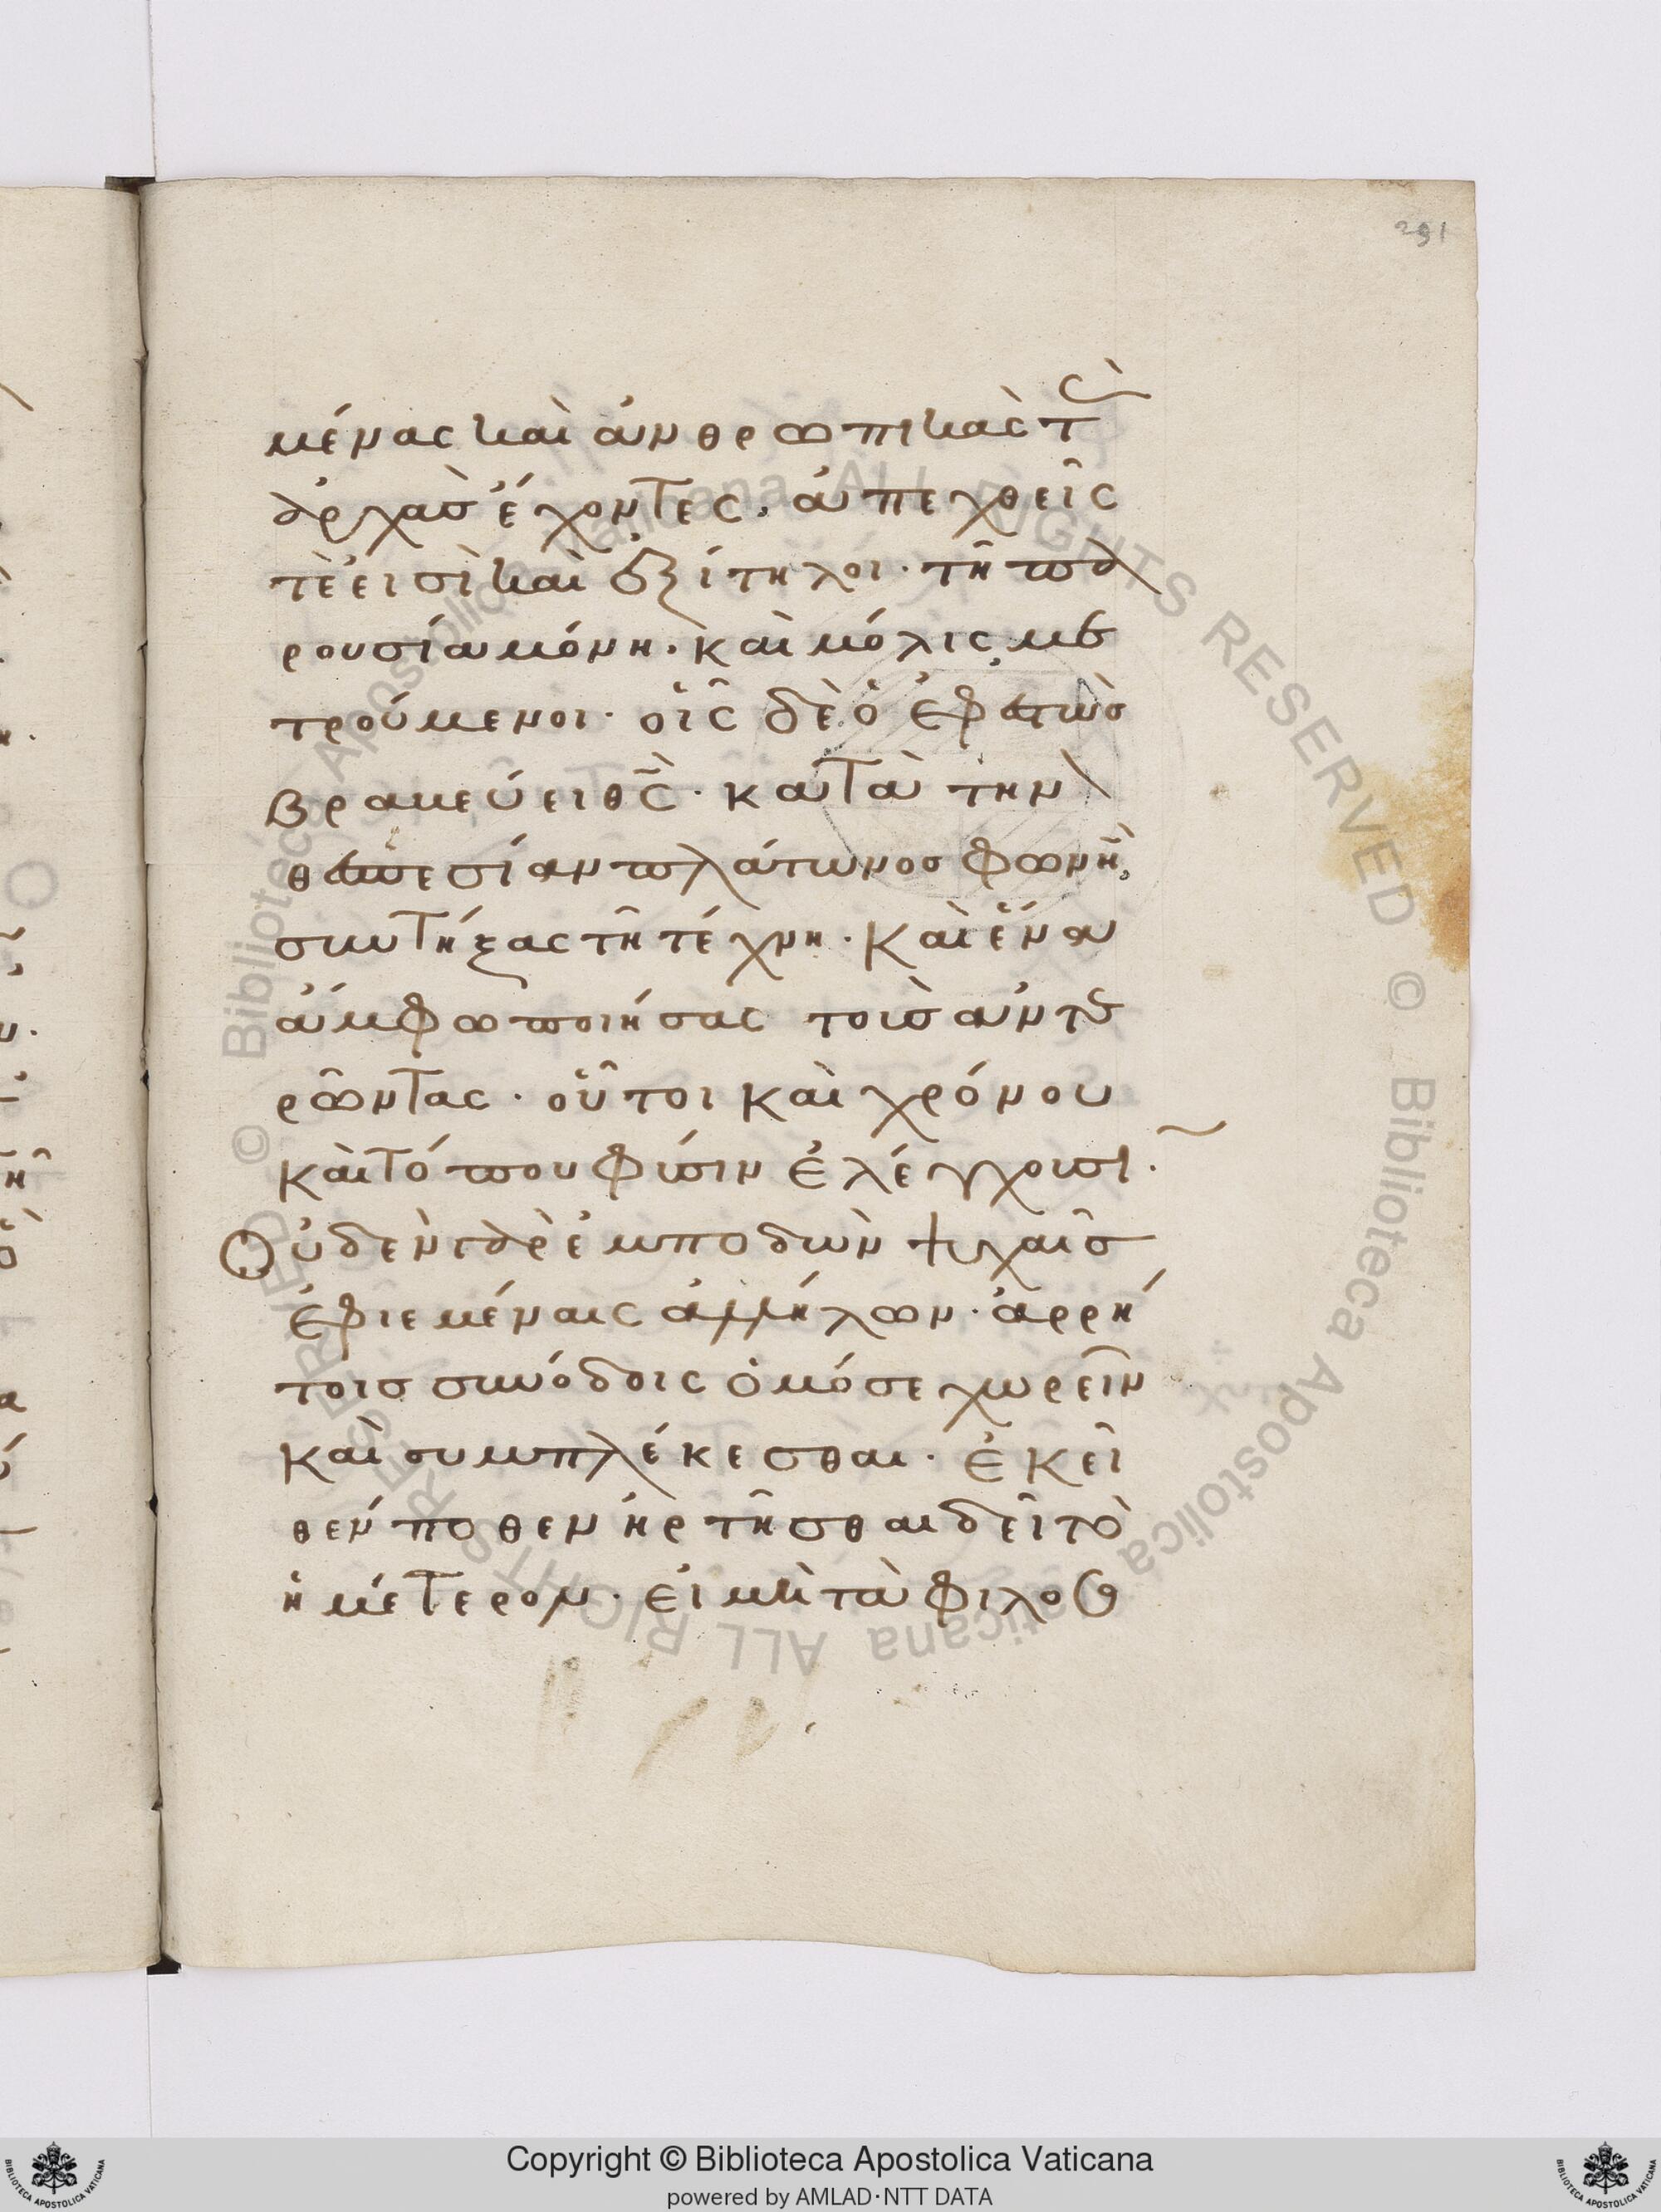 291
μένας καὶ ἀνθρωπικὰς τὰς
ἀρχὰσ ἔχοντες, ἀπεχθεῖς
τὲ εἰσὶ καὶ ἐξίτηλοι· τῆ πα
ρουσία μόνη· καὶ μόλις με
τρούμενοι· οἷς δὲ ὁ ἔρωσ
βραβεύει θς̀· κατὰ τὴν
θεσπεσίαν πλάτωνοσ φωνὴ,
συντήξας τῆ τέχνη· καὶ ἕνα
ἄμφω ποιήσας τοὺσ ἀντε
ρῶντας· οὗτοι καὶ χρόνου
καὶ τόπου φύσιν ἐλέγχουσι·
Οὐδὲν γὰρ ἐμποδὼν ψυχαῖσ
ἐφιεμέναις ἀλλήλων· ἀρρή
τοισ συνόδοις ὁμόσε χωρεῖν
καὶ συμπλέκεσθαι· ἐκεῖ
θέν ποθεν ἠρτῆσθαι δεῖ τὸ
ἡμέτερον· εἰ μὴ τὰ φιλοσ
Copyright © Biblioteca Apostolica Vaticana
powered by AMLAD·NTT DATA
© Biblioteca Apostolica Vaticana ALL RIGHTS RESERVED
© Biblioteca Apostolica Vaticana ALL RIGHTS RESERVED
BIBLIOTECA APOSTOLICA VATICANA
BIBLIOTECA APOSTOLICA VATICANA